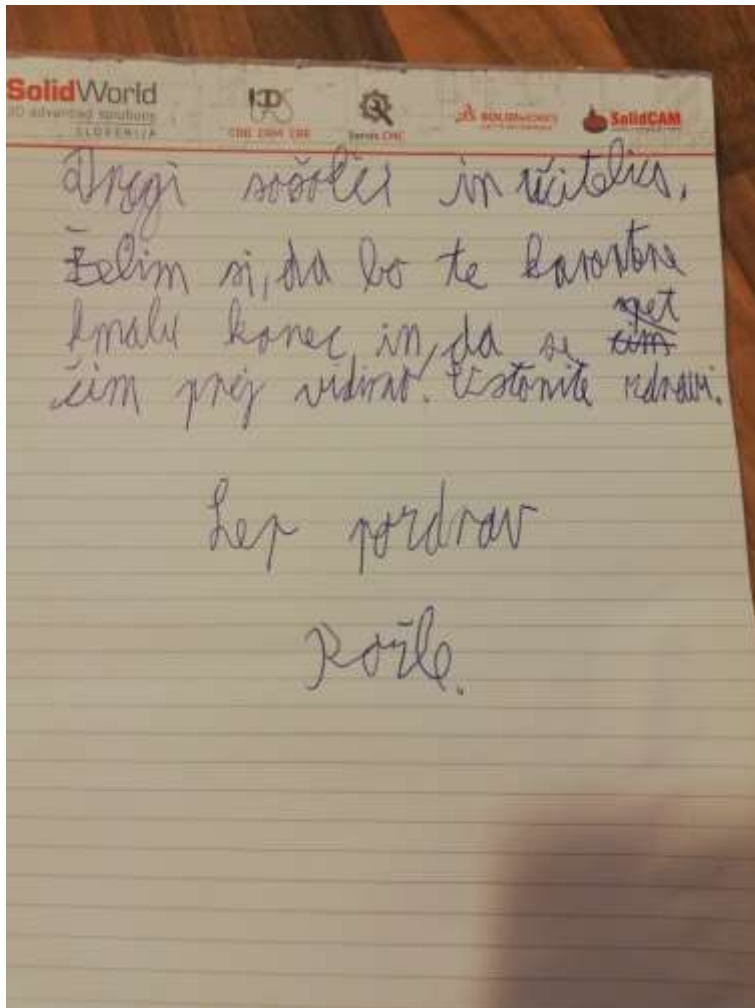 SolidWorld
3D advanced solutions
SLOVENIJA
CAD CAM CAE
Servis CNC
SOLIDWORKS
SolidCAM
Dragi sošolci in učitelica,
Želim si, da bo te karantene
kmalu konec in, da se spet
čim prej vidimo. Ostanite zdravi.
Lep pozdrav
Rožle.